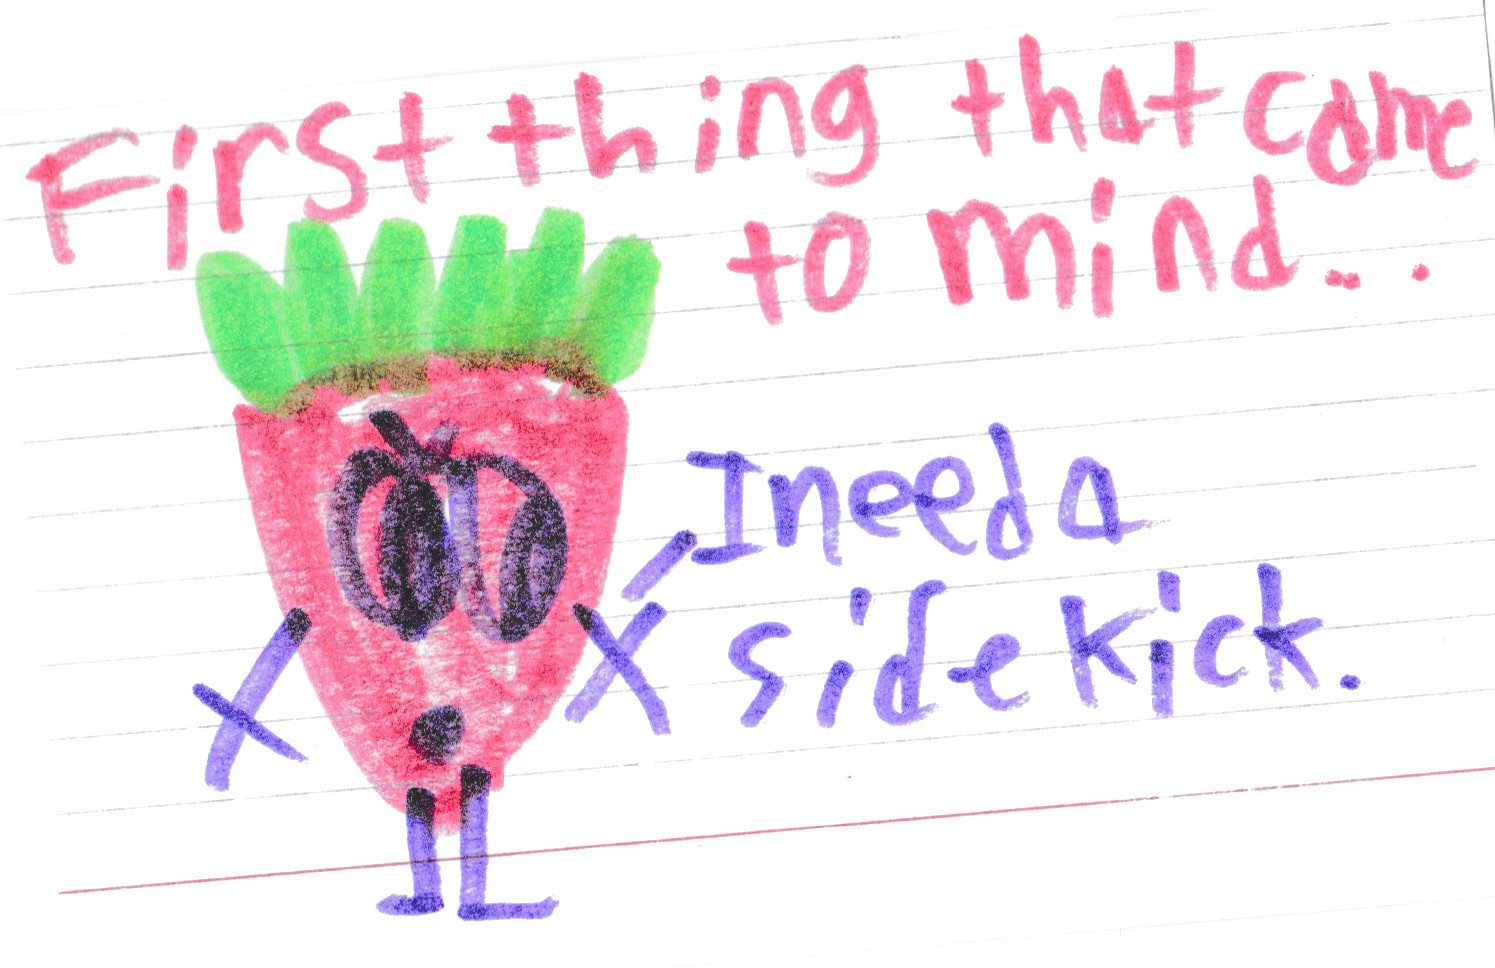 First thing that came
to mind...
I need a
sidekick.